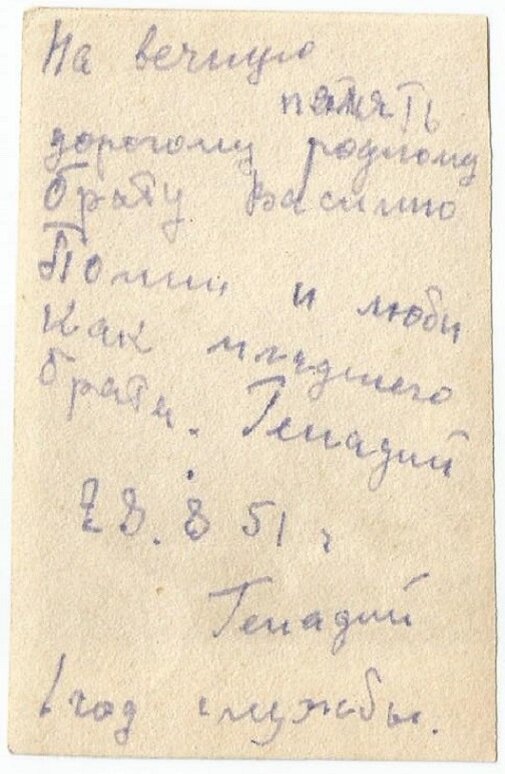 На вечную
память
дорогому родному
брату Василию
Помни и люби
как младшего
брата. Генадий
28.8 51 г
Генадий
1 год службы.